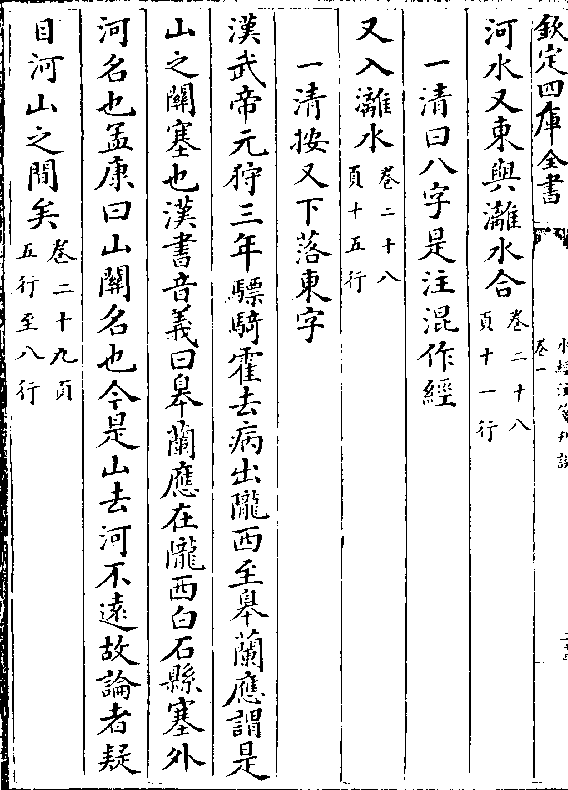 欽定四庫全書
水經注箋刊誤
卷一
河水又東與灕水合卷二十八頁十一行
一清曰八字是注混作經
又入灕水卷二十八頁十五行
一清按又下落東字
漢武帝元狩三年驃騎霍去病出隴西至皋蘭應謂是
山之關塞也漢書音義曰皋蘭應在隴西白石縣塞外
河名也孟康曰山關名也今是山去河不遠故論者疑
目河山之間矣卷二十九頁五行至八行